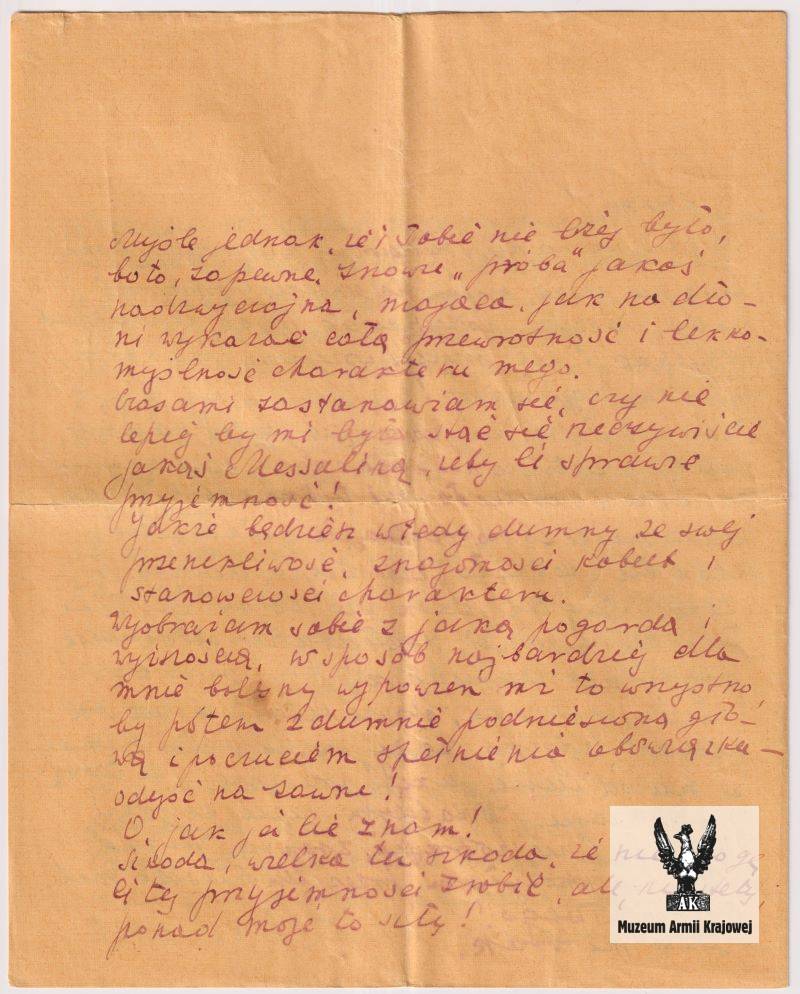 Myśle jednak, że i Tobie nie lżej było,
bo to, zapewne, znowu „próba” jakaś
nadzwyczajna, mająca, jak na dło-
ni wykazać całą przewrotność i lekko-
myślność charakteru mego.
Czasami zastanawiam się, czy nie
lepiej by mi było stać się rzeczywiście
jakąś Messaliną, żeby Ci sprawić
przyjemność!
Jakże będziesz wtedy dumny ze swej
przenikliwość, znajomości kobiet i
stanowczości charakteru.
Wyobrażam sobie z jaką pogardą i
wyższością, w sposób najbardziej dla
mnie bolesny wypowiesz mi to wszystko,
by potem z dumnie podniesioną gło-
wą i poczuciem spełnienia obowiązku-
odejść na zawsze!
O, jak ja Cię znam!
Szkoda, wielka tu szkoda, że nie mogę
Ci tej przyjemności zrobić, ale, niestety,
ponad moje to siły!
AK
Muzeum Armii Krajowej